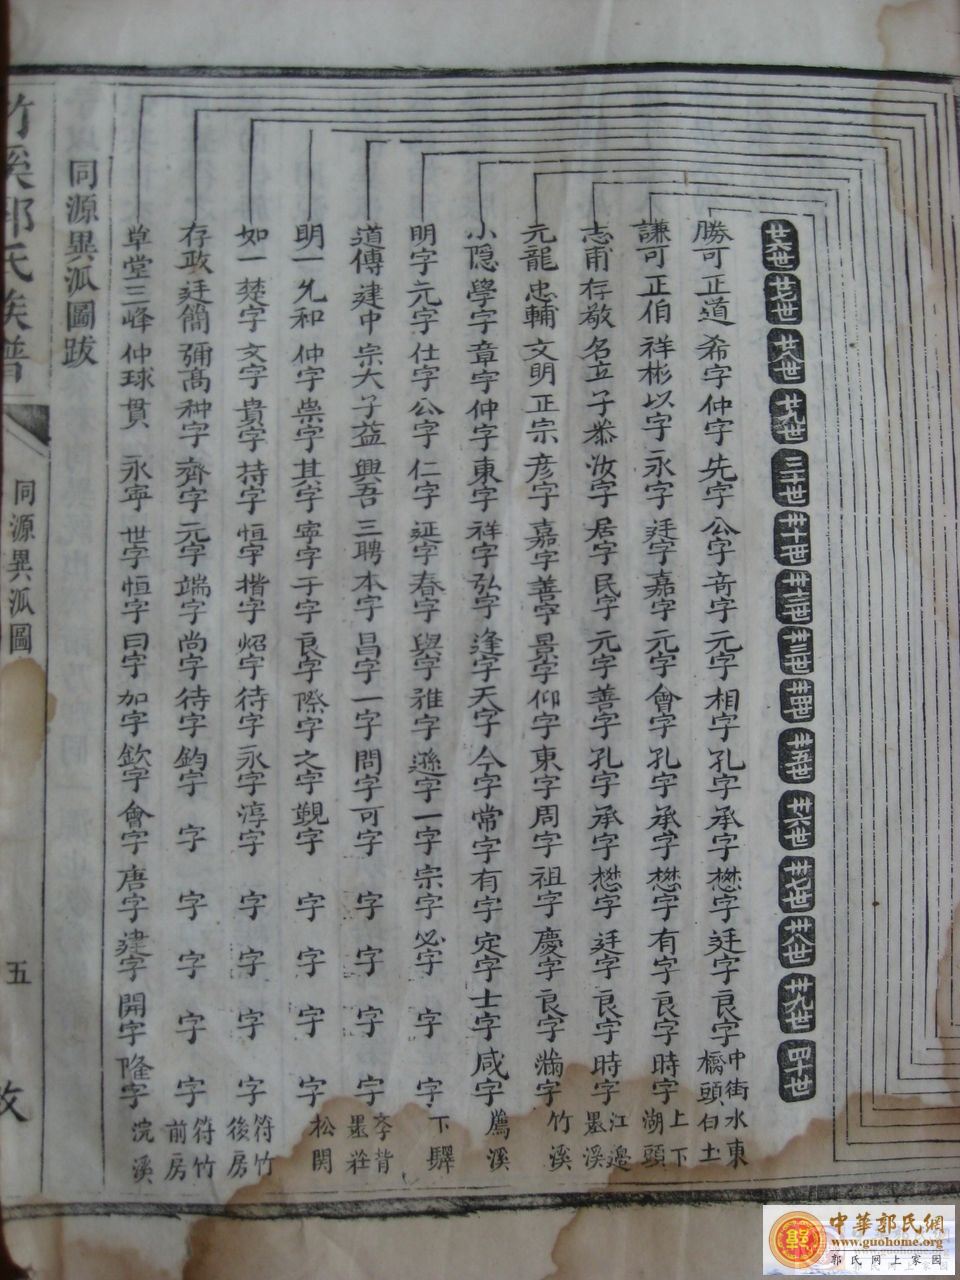 廿六世 廿七世 廿八世 廿九世 三十世 卅十一世 卅十二世 卅三世 卅四世 卅五世 卅六世 卅七世 卅八世 卅九世 四十世
勝可 正道 希字 仲字 先字 公字 奇字 元字 相字 孔字 承字 懋字 廷字 良字 中街水東橋頭白土
謙可 正伯 祥彬 以字 永字 廷字 嘉字 元字 會字 孔字 承字 懋字 有字 良字 時字 上下湖頭
志甫 存敬 名立 子恭 汝字 居字 民字 元字 善字 孔字 承字 懋字 廷字 良字 時字 江邊墨溪
元龍 忠輔 文明 正宗 彥字 嘉字 善字 景字 仰字 東字 周字 祖字 慶字 良字 滿字 竹溪
小隱 學字 章字 仲字 東字 祥字 弘字 逢字 天字 今字 常字 有字 定字 士字 咸字 鷹溪
明字 元字 仕字 公字 仁字 延字 春字 與字 雅字 遜字 一字 宗字 必字 字 字 下驛
道傳 建中 宗大 子益 興吾 三聘 本字 昌字 一字 問字 可字 字 字 字 字 李背墨莊
明一 允和 仲字 崇字 其字 寧字 于字 良字 際字 之字 觀字 字 字 字 字 松關
如一 楚字 文字 貴字 持字 恒字 楷字 炤字 待字 永字 淳字 字 字 字 字 符竹後房
存政 廷簡 彌高 种字 齊字 元字 端字 尚字 待字 鈞字 字 字 字 字 字 符竹前房
草堂 三峰 仲球 貫 永寧 世字 恒字 曰字 加字 欽字 會字 唐字 建字 開字 隆字 浣溪
同源異派圖跋
竹溪郭氏族譜
同源異派圖
五
中華郭氏網
www.guohome.org
郭氏网上家园